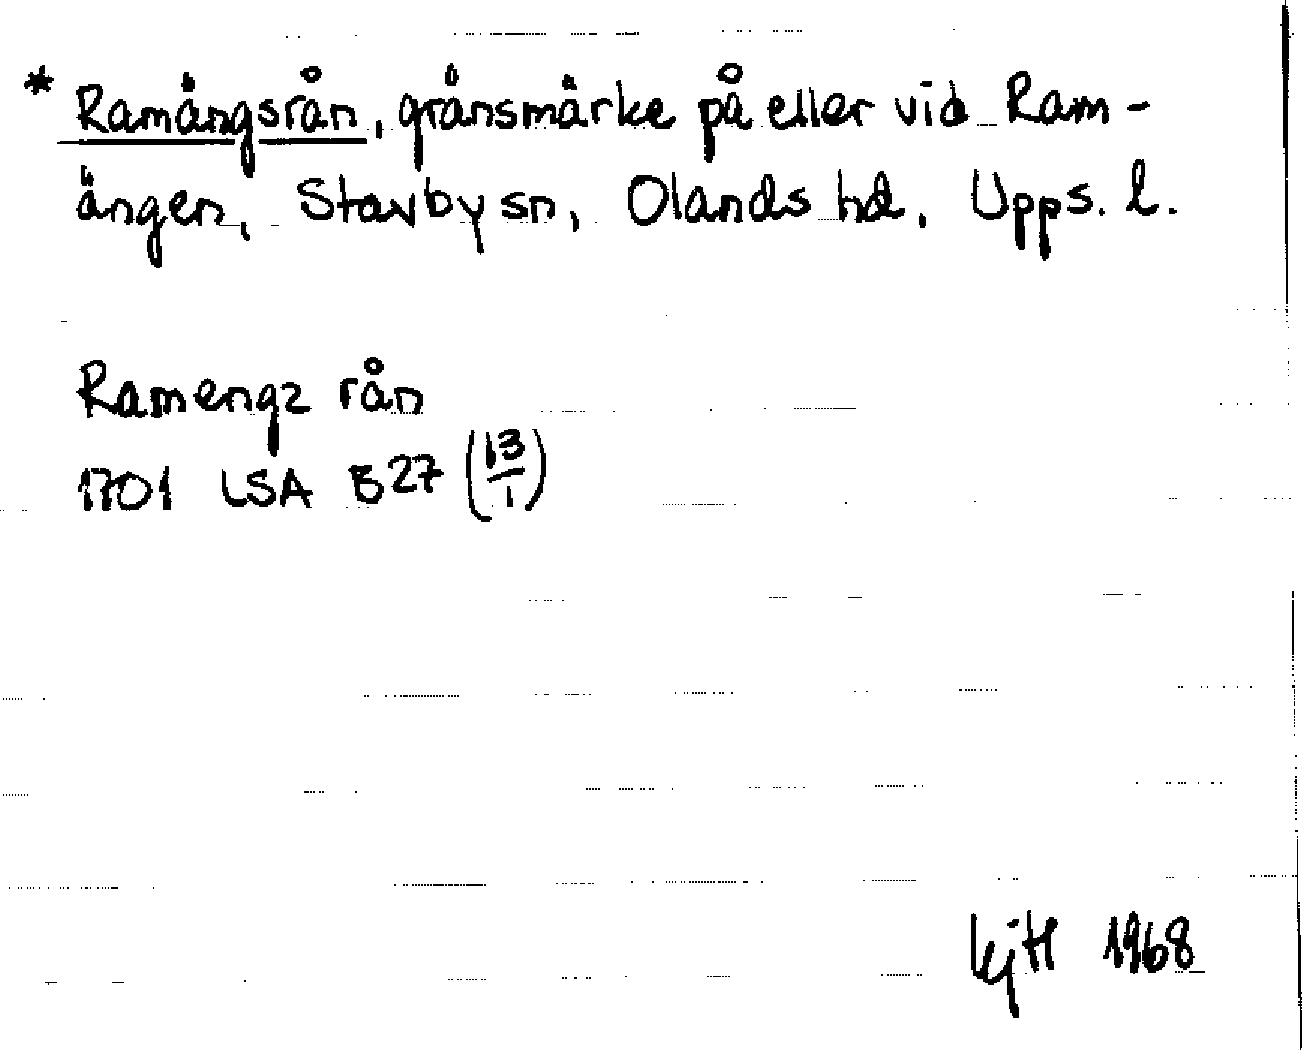 * Ramängsrån, gränsmärke på eller vid Ram-
ängen, Stavby sn, Olands hd, Upps. l.
Ramengz rån
1701 LSA B27 (13/1)
KjH 1968